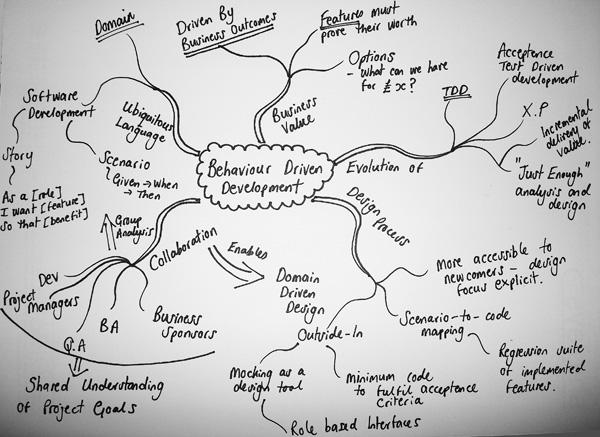 Domain
Driven By
Business Outcomes
Features must
prove their worth
Options
- What can we have
for £x?
Business
Value
Acceptance
Test Driven
development
TDD
X.P
Incremental
delivery of
value.
"Just Enough"
analysis and
design
Evolution of
Behaviour Driven
Development
Ubiquitous
Language
Software
Development
Story
As a [role]
I want [feature]
so that [benefit]
Scenario
Given → When
→ Then
Group
Analysis
Collaboration
Dev
Project
Managers
Q.A
BA
Business
Sponsors
Shared Understanding
of Project Goals
Enables
Domain
Driven
Design
Design Process
More accessible to
newcomers - design
focus explicit.
Scenario-to-code
mapping
Regression suite of
implemented
features.
Outside-In
Mocking as a
design tool
Role based Interfaces
Minimum code
to fulfil acceptance
criteria